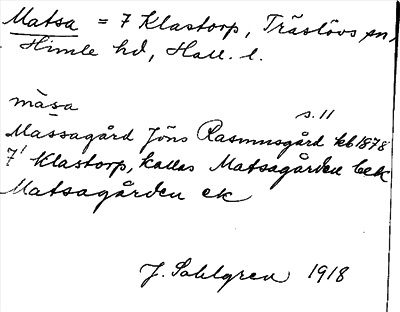 Matsa = 7 Klastorp, Träslövs sn,
Himle hd, Hall. l.
màsa
s. 11
Massagård Jöns Rasmusgård kb 1878
7¹ Klastorp, kallas Matsagården bek
Matsagården ek
J. Sahlgren 1918